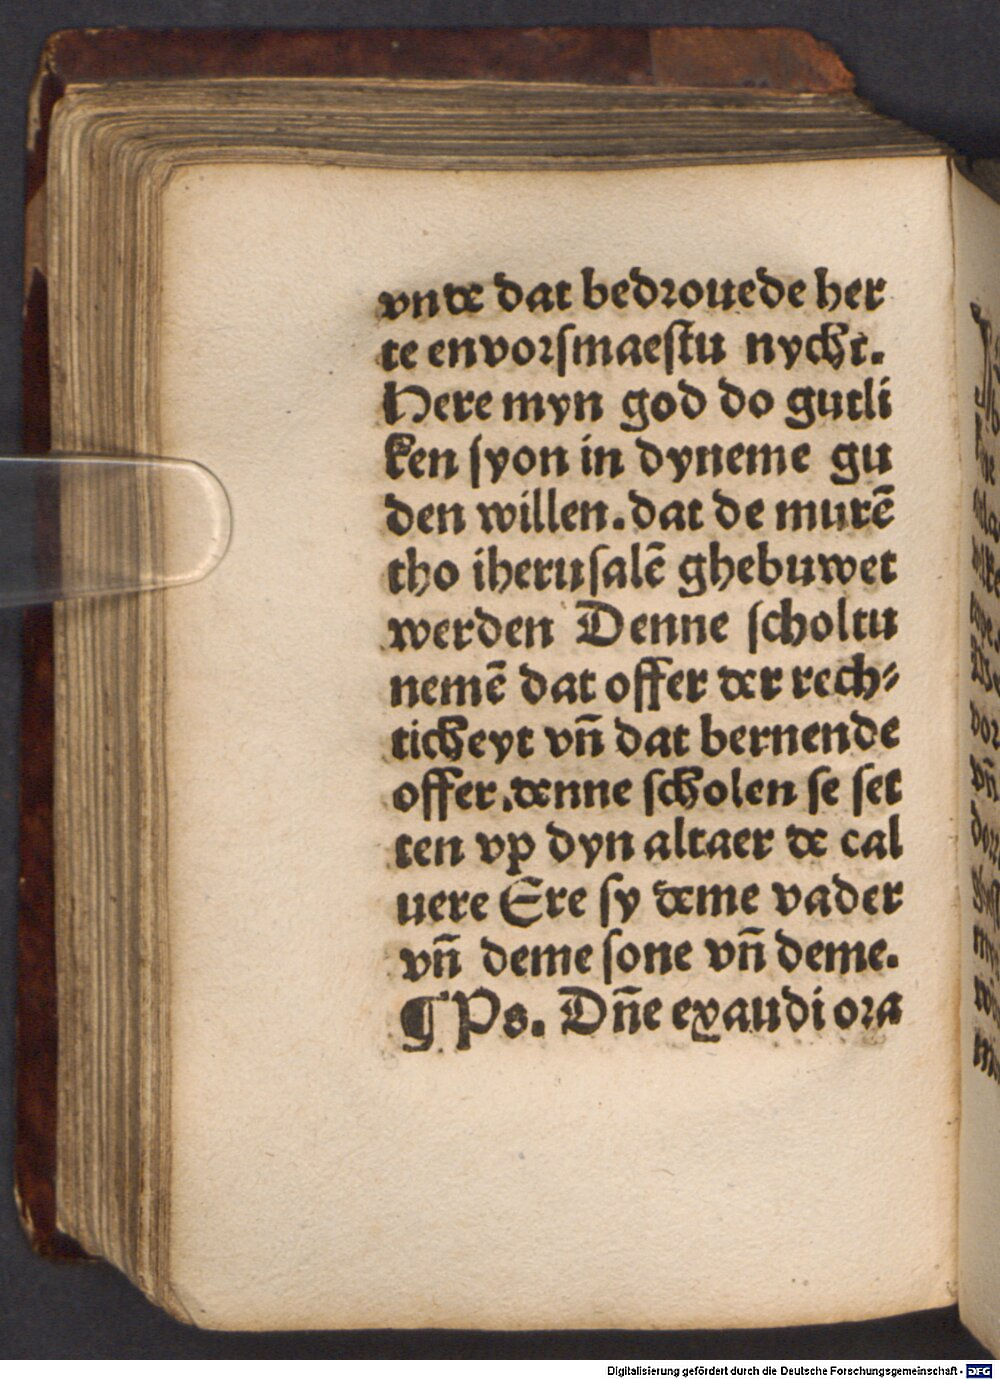 vnde dat bedrouede her
te envorsmaestu nycht.
Here myn god do gutli
ken syon in dyneme gu
den willen. dat de murē
tho iherusalē ghebuwet
werden Denne scholtu
nemē dat offer der rech⸗
ticheyt vn̄ dat bernende
offer. denne scholen se set
ten vp dyn altaer de cal
uere Ere sy deme vader
vn̄ deme sone vn̄ deme.
¶ Ps. Dn̄e exaudi ora
Digitalisierung gefördert durch die Deutsche Forschungsgemeinschaft - DFG